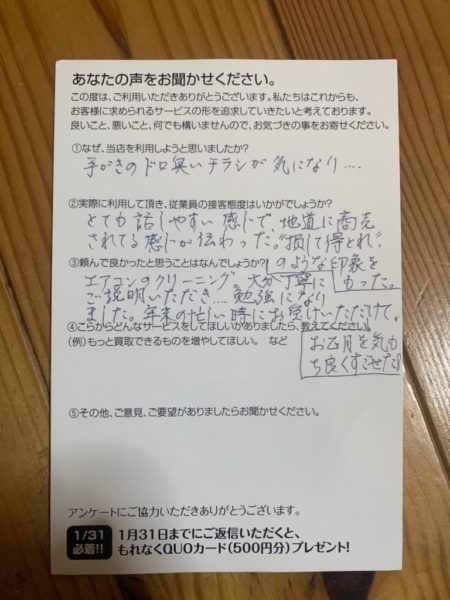 あなたの声をお聞かせください。
この度は、ご利用いただきありがとうございます。私たちはこれからも、
お客様に求められるサービスの形を追求していきたいと考えております。
良いこと、悪いこと、何でも構いませんので、お気づきの事をお寄せください。
①なぜ、当店を利用しようと思いましたか?
手がきのドロ臭いチラシが気になり....
②実際に利用して頂き、従業員の接客態度はいかがでしょうか?
とても話しやすい感じで、地道に商売
されてる感じが伝わった。"損して得とれ"
のような印象を
もった。
③頼んで良かったと思うことはなんでしょうか?
エアコンのクリーニング、大分丁寧に
ご説明いただき...勉強になり
ました。年末の忙しい時にお受けいただけて、
お正月を気も
ち良くすごせた!
④こらからどんなサービスをしてほしいかありましたら、教えてください。
(例)もっと買取できるものを増やしてほしい。 など
⑤その他、ご意見、ご要望がありましたらお聞かせください。
アンケートにご協力いただきありがとうございます。
1/31
必着!!
1月31日までにご返信いただくと、
もれなくQUOカード(500円分)プレゼント!